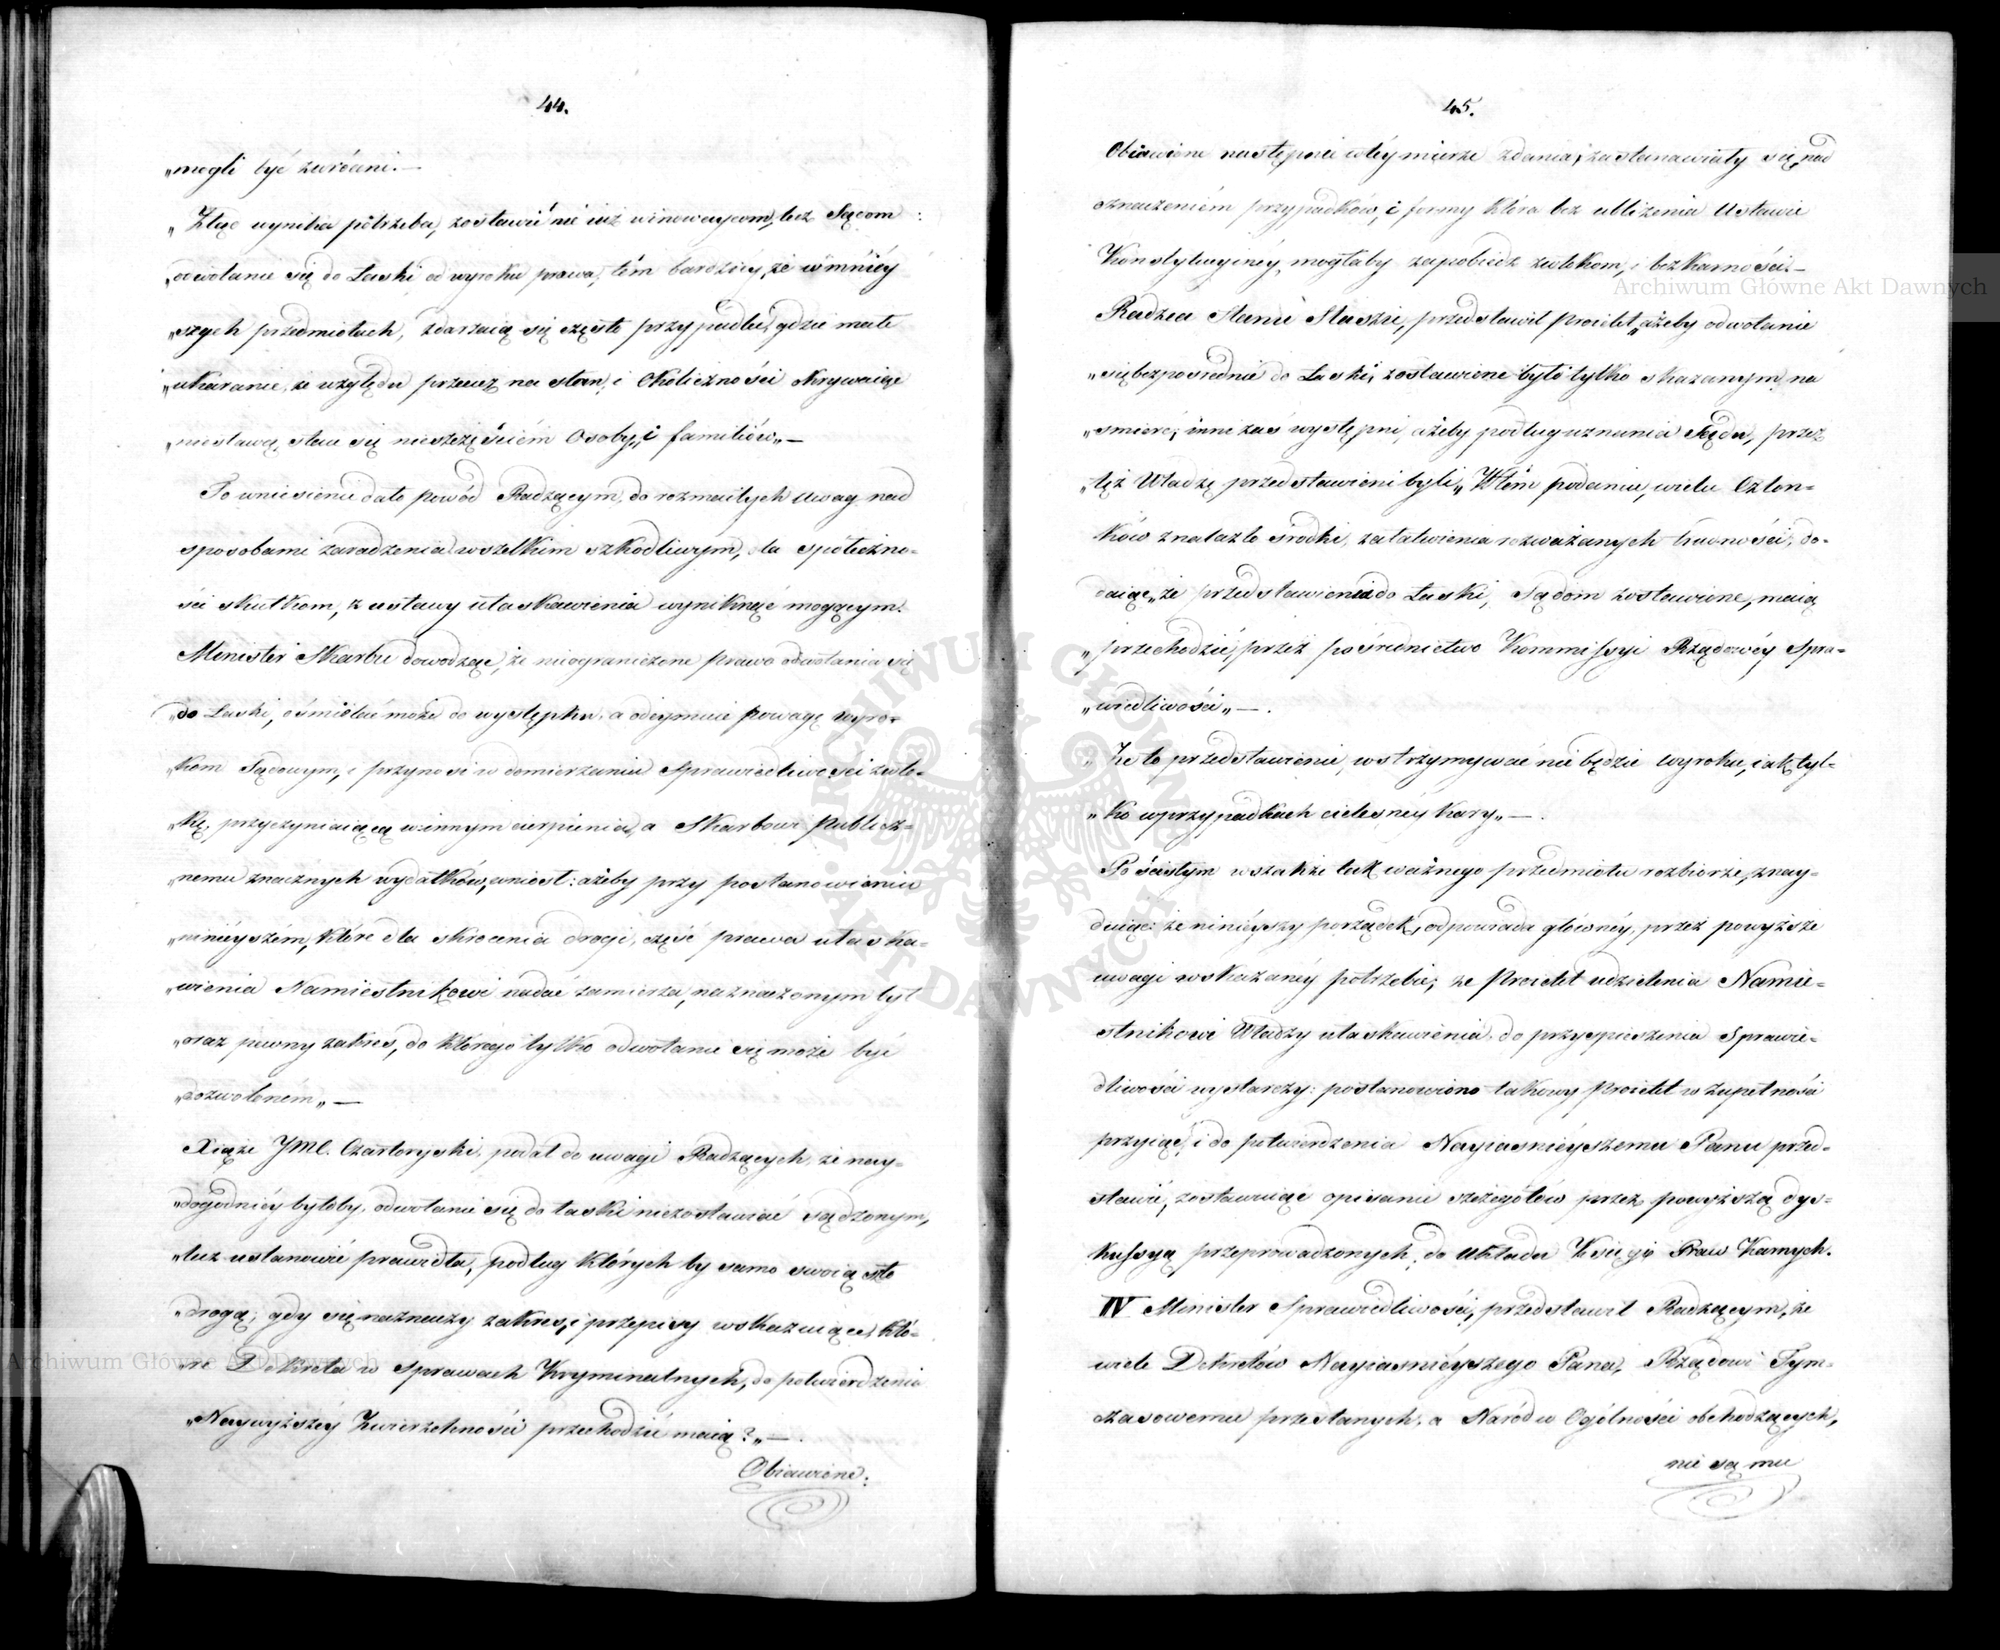 44.
„mogli być zwróceni.—
„Ztąd wynika potrzeba, zostawić nie iuż winowaycom, lecz Sądom
„odwołanie się do Łaski od wyroku prawa; tém bardziéy, że w mniéy
„szych przedmiotach, zdarzaią się często przypadki, gdzie małe
„ukaranie, ze względu przecież na stan, i okoliczności okrywaiąc
„niesławą, staie się nieszczęściém Osoby, i familiów„—
To wniesienie dało powód Radzącym, do rozmaitych uwag nad
sposobami zaradzenia wszelkim szkodliwym, dla społeczno-
ści skutkom, z ustawy ułaskawienia wyniknąć mogącym.
Minister Skarbu dowodząc, że nieograniczone prawo odwołania się
„do Łaski, ośmielać może do występku, a odeymuie powagę wyro-
„kom Sądowym, i przynosi w domierzaniu Sprawiedliwości zwło-
„kę, przyczyniaiącą winnym cierpienia, a Skarbowi Publicz-
„nemu znacznych wydatków, wniosł: ażeby przy postanowieniu
„ninieyszém, które dla skrócenia drogi, część prawa ułaska-
„wienia Namiestnikowi nadać zamierza, naznaczonym był
„oraz pewny zakres, do którego tylko odwołanie się może być
„dozwoloném„—
Xiąże JMC. Czartoryski, podał do uwagi Radzących, że nay-
„dogodniéy byłoby, odwołanie się do łaski niezostawiać sądzonym,
„lecz ustanowić prawidła, podług których by samo swoią szło
„drogą; gdy się naznaczy zakres, i przepisy wskazuiące, któ-
re Dekreta w sprawach Kryminalnych, do potwierdzenia
„Naywyższéy Zwierzchności przechodzić maią?„—.
Obiawione:
45.
Obiawione następnie w téy mierze zdania, zastanawiały się, nad
oznaczeniém przypadków, i formy która bez ubliżenia Ustawie
Konstytucyinéy, mogłaby zapobiedz zwłokom, i bezkarności.—
Radzca Stanu Staszic, przedstawił Proiekt „ażeby odwołanie
„się bezpośrednie do Łaski, zostawione było tylko skazanym na
„śmierć; inni zaś występni, ażeby podług uznania Sądu, przez
„tęż Władzę przedstawieni byli„ W tém podaniu, wielu Człon-
ków znalazło środki, załatwienia rozważanych trudności, do-
daiąc „że przedstawienia do Łaski, Sądom zostawione, maią
„przechodzić, przez pośrednictwo Kommissyi Rządowéy Spra-
„wiedliwości„—.
„Że to przedstawienie, wstrzymywać nie będzie wyroku, iak tyl-
„ko w przypadkach cielesnéy kary„—.
Po ścisłym wszakże tak ważnego przedmiotu rozbiorze, znay-
duiąc: że ninieyszy porządek, odpowiada głównéy, przez powyższe
uwagi wskazanéy potrzebie; że Proiekt udzielenia Namie-
stnikowi Władzy ułaskawienia, do przyspieszenia Sprawie-
dliwości wystarczy: postanowiono takowy Proiekt w zupełności
przyiąć, i do potwierdzenia Nayiaśnieyszemu Panu przed-
stawić, zostawuiąc opisanie szczegółów przez powyższą dys-
kussyą przeprowadzonych, do układu Księgi Praw Karnych.
IV Minister Sprawiedliwości, przedstawił Radzącym, że
wiele Dekretów Nayiaśnieyszego Pana, Rządowi Tym-
czasowemu przesłanych, a Naród w Ogólności obchodzących,
nie są mu
Archiwum Główne Akt Dawnych
Archiwum Główne Akt Dawnych
ARCHIWUM GŁÓWNE AKT DAWNYCH